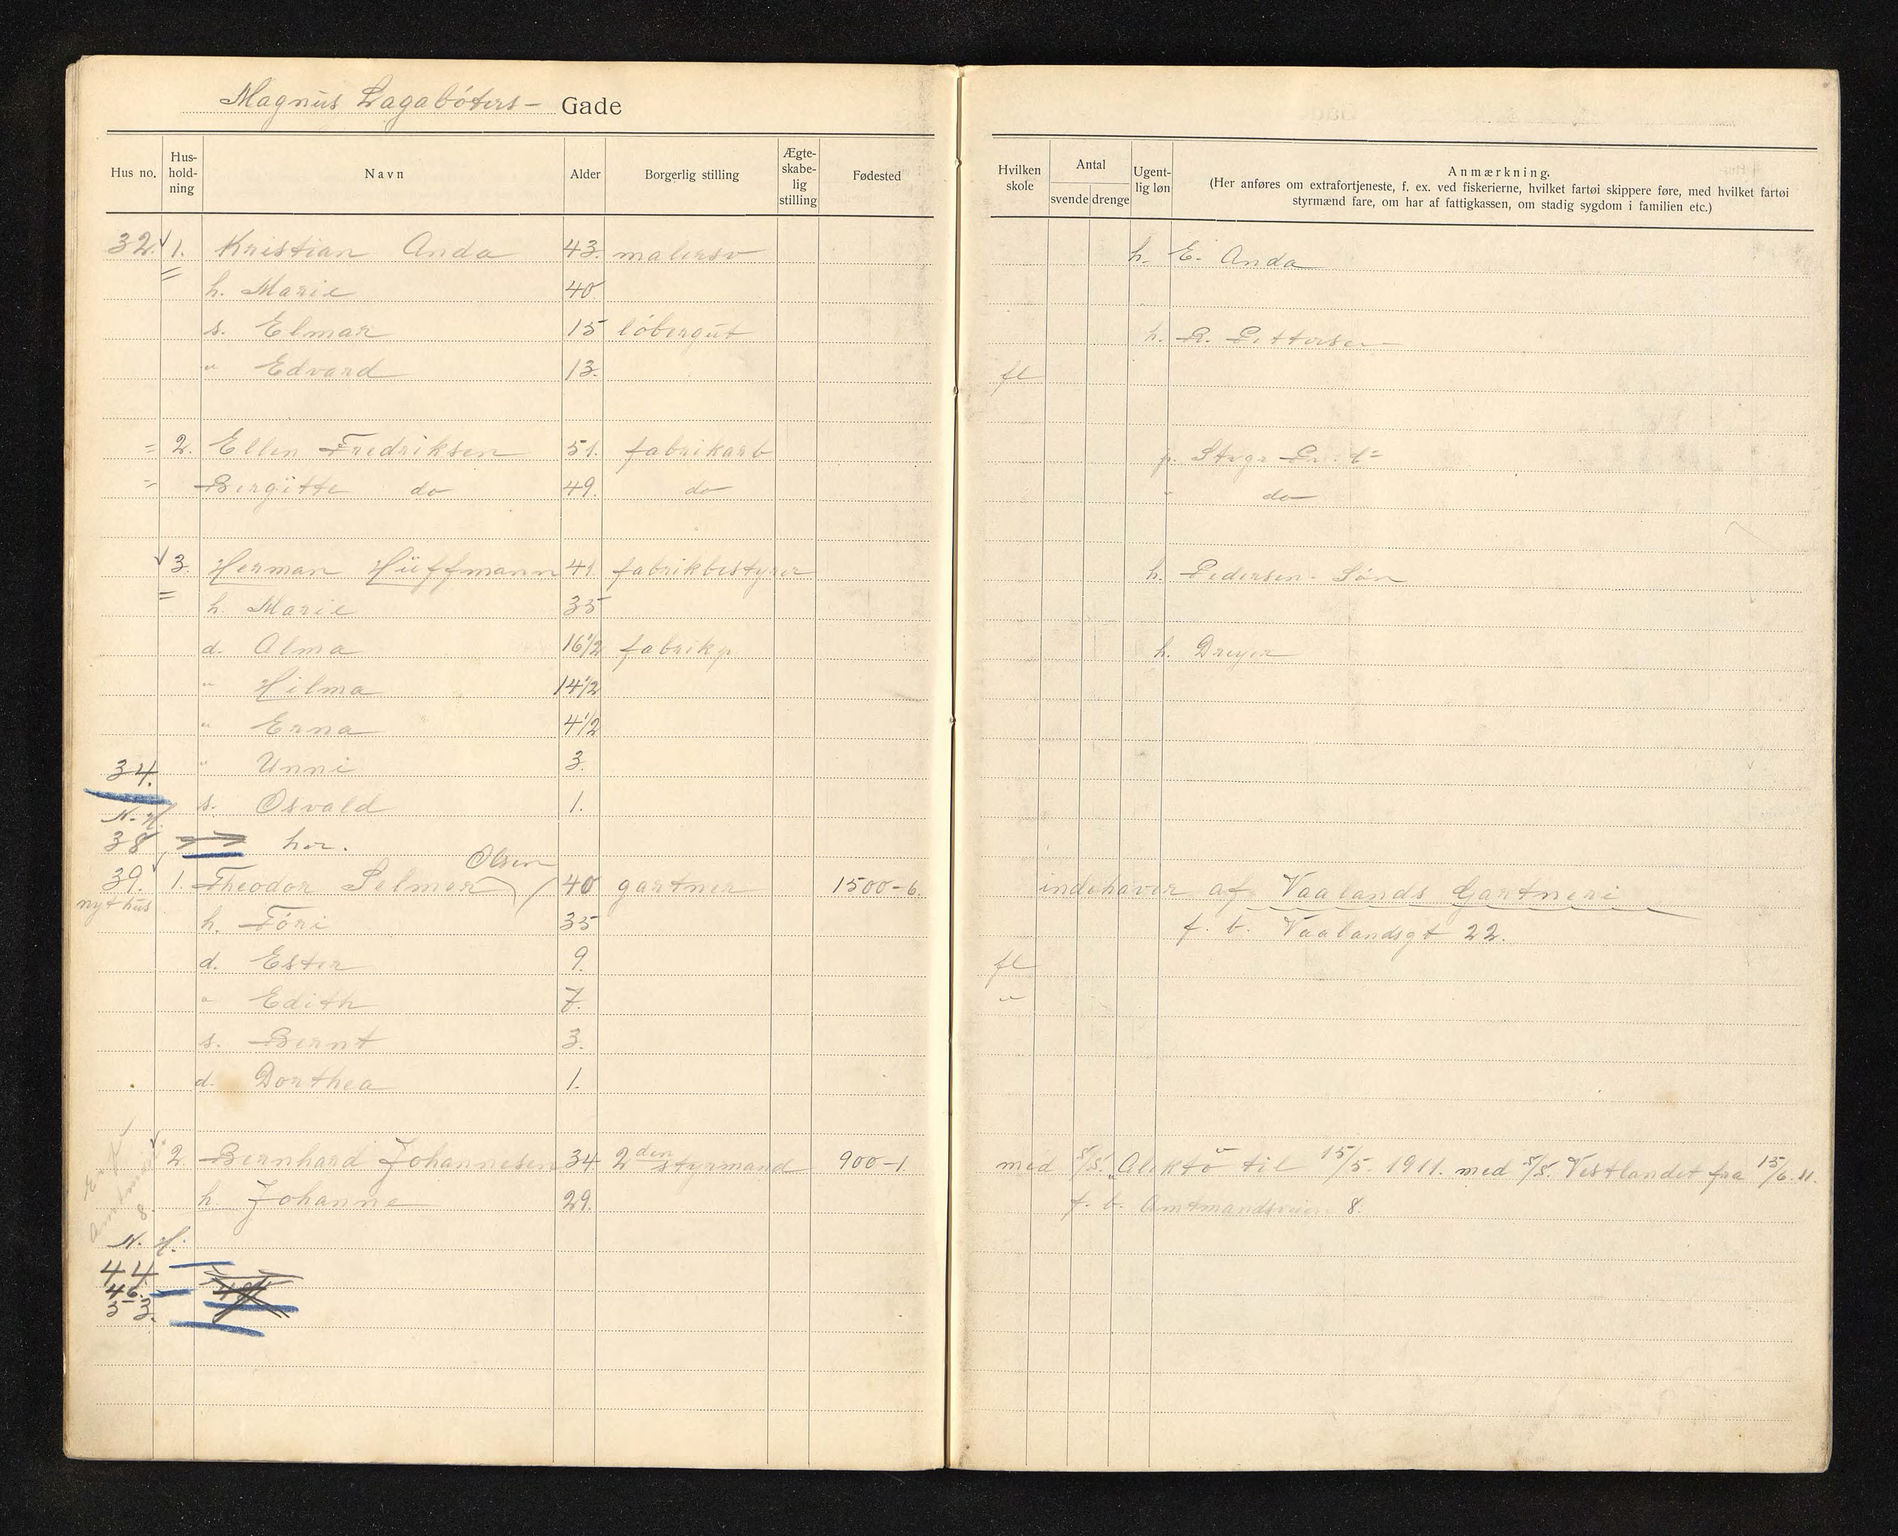 Magnus Lagabøters- Gade
Hus no. Hus-hold-ning Navn Alder Borgerlig stilling Ægte-skabe-lig stilling Fødested Hvilken skole Antal svende drenge Ugent-lig løn Anmærkning.
(Her anføres om extrafortjeneste, f. ex. ved fiskerierne, hvilket fartøi skippere føre, med hvilket fartøi
styrmænd fare, om har af fattigkassen, om stadig sygdom i familien etc.)
32. 1. Kristian Anda 43. malersv h. E. Anda
h. Marie 40
s. Elmar 15 løbergut h. R. Pettersen
" Edvard 13. fl
= 2. Ellen Fredriksen 51. fabrikarb p. Stvgr
= Bergitte do 49. do " do
3. Herman Hüffmann 41. fabrikbestyrer h. Pedersen - Søn
h. Marie 35
d. Alma 16 1/2 fabrikp h. Dreyer
" Hilma 14 1/2
" Erna 4 1/2
34. " Unni 3.
s. Osvald 1.
N. H.
38 her.
Olsen
39. 1. Theodor Selmer 40 gartner 1500-6. indehaver af Vaalands Gartneri
nyt hus
h. Tóri 35 f. b. Vaalandsgt 22.
d. Ester 9. fl
" Edith 7. "
s. Bernt 3.
d. Dorthea 1.
2. Bernhard Johannesen 34 2den styrmand 900-1. med S/S. Alektó til 15/5. 1911. med S/S. Vestlandet fra 15/6. 11.
h. Johanne 29. f. b. Amtmandsveien 8.
8.
N. H.
44.
46.
53.